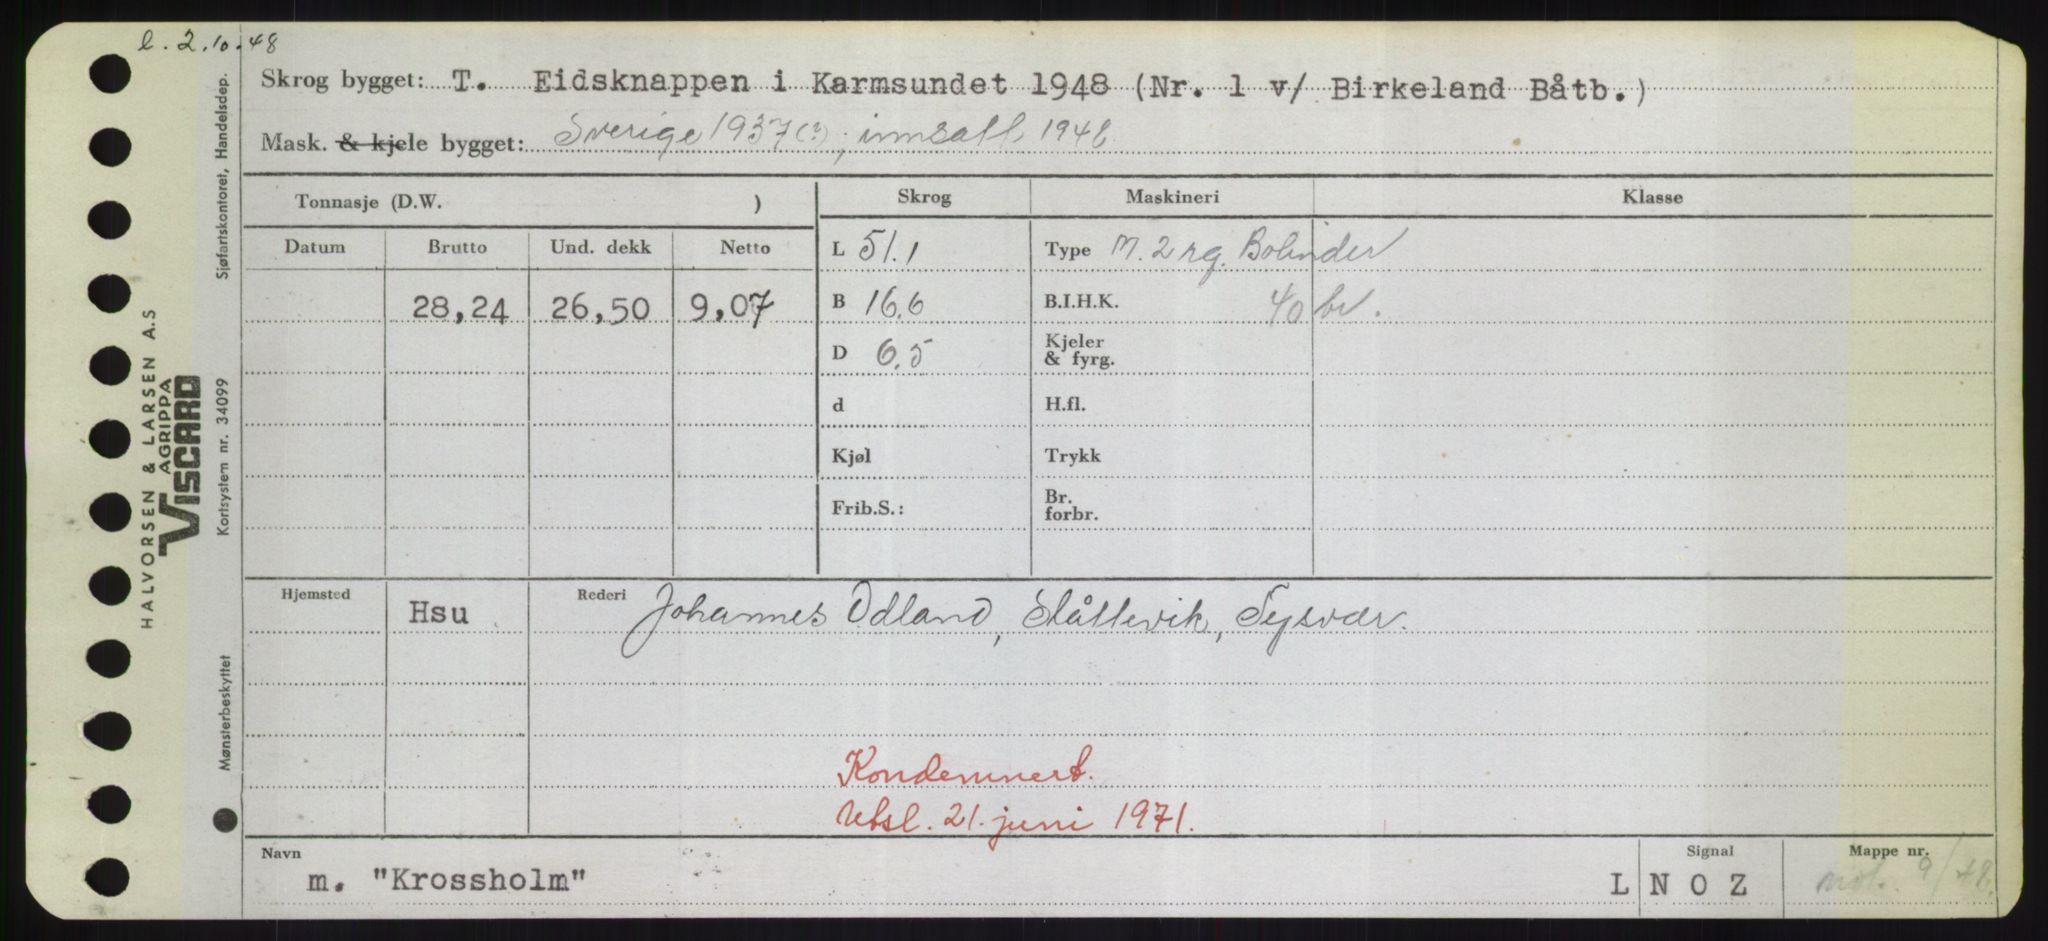 l. 2.10.48
Skrog bygget: T. Eidsknappen i Karmsundet 1948 (Nr. 1 v/ Birkeland Båtb.)
Mask. & kjele bygget: Sverige 1937(?), innsatt 1948
Tonnasje (D.W. )
Skrog
Maskineri
Klasse
Datum
Brutto
Und. dekk
Netto
28,24
26,50
9,07
L 51.1
B 16.6
D 6.5
d
Kjøl
Frib.S.:
Type M. 2 sg. Bolinder
B.I.H.K. 40 br.
Kjeler
& fyrg.
H.fl.
Trykk
Br.
forbr.
Hjemsted
Hsu
Rederi Johannes Odland, Slåttevik, Tysvær.
Kondemnert.
Utsl. 21. juni 1971.
Navn
m. "Krossholm"
Signal
L N O Z
Mappe nr.
9/48.
HALVORSEN & LARSEN A.S
AGRIPPA
VISCARD
Sjøfartskontoret, Handelsdep.
Kortsystem nr. 34099
Mønsterbeskyttet